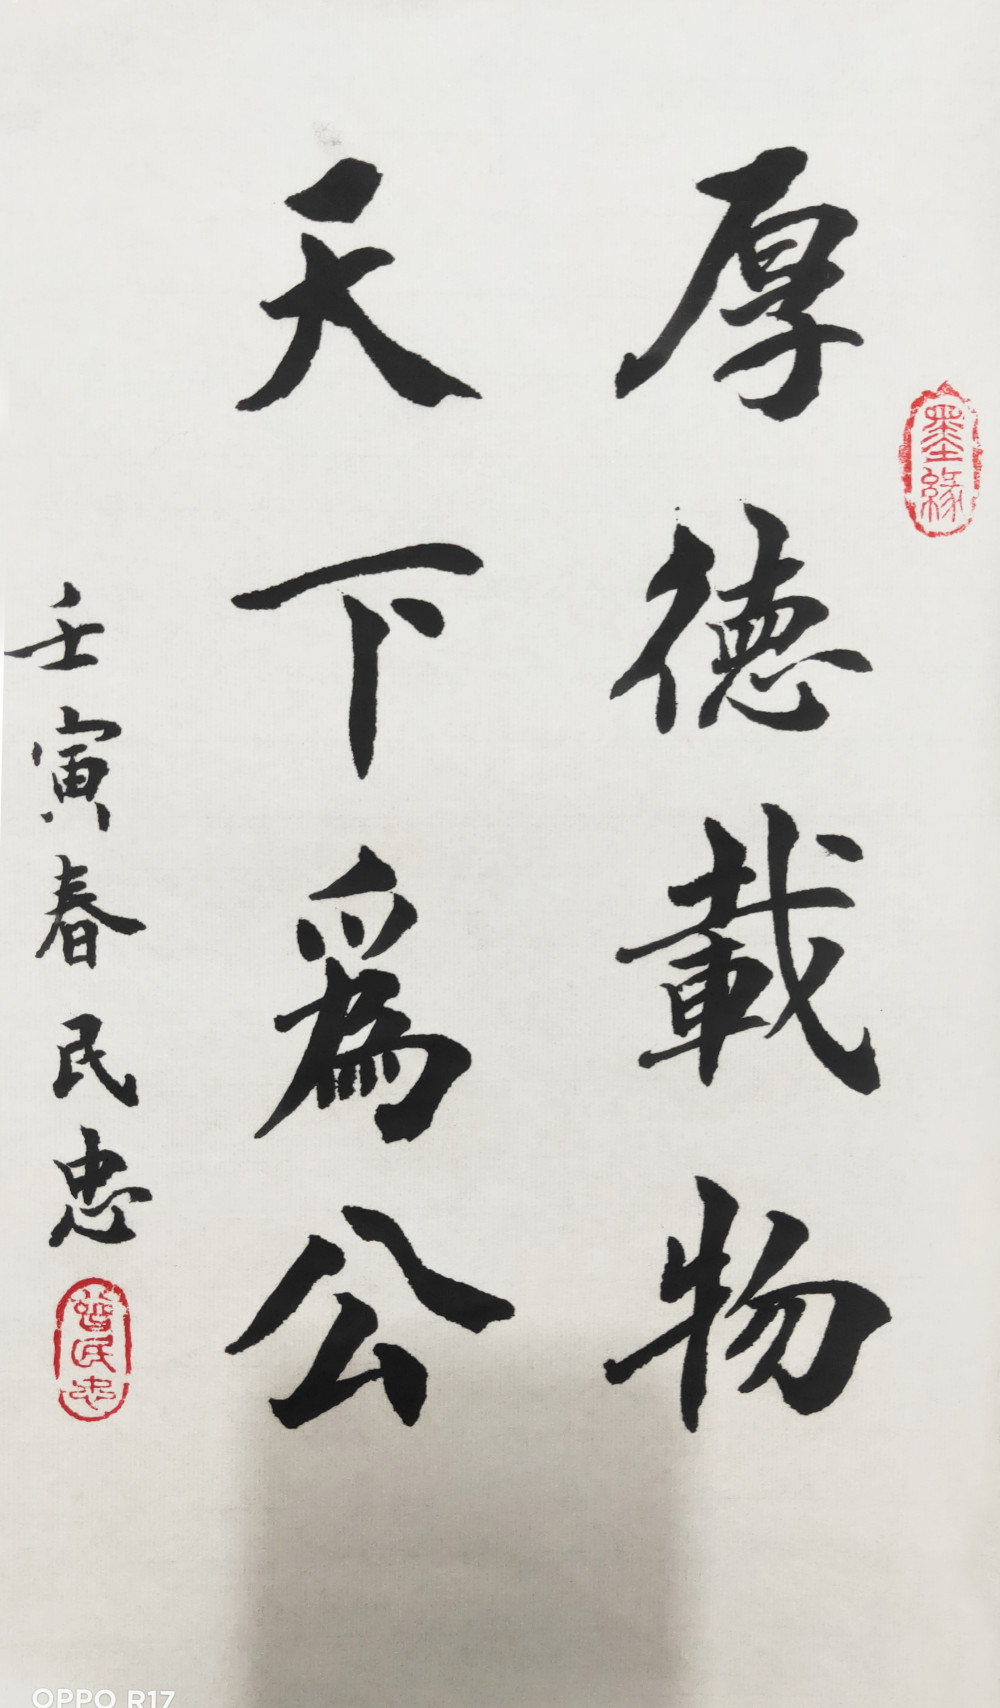 厚德載物
天下爲公
壬寅春民忠
墨緣
曾民忠
OPPO R17